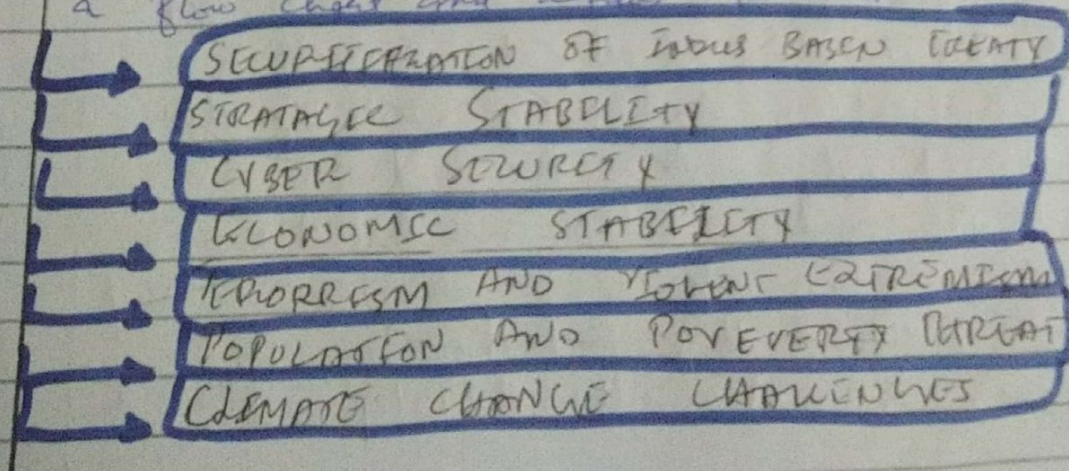 a flow chart and
SECURITIZATION OF INDUS BASEN TREATY
STRATAGIC STABILITY
CYBER SECURITY
ECONOMIC STABILITY
TERORRISM AND VIOLENT EXTREMISM
POPULATION AND POVEVERTY THREAT
CLIMATE CHANGE CHALLENGES